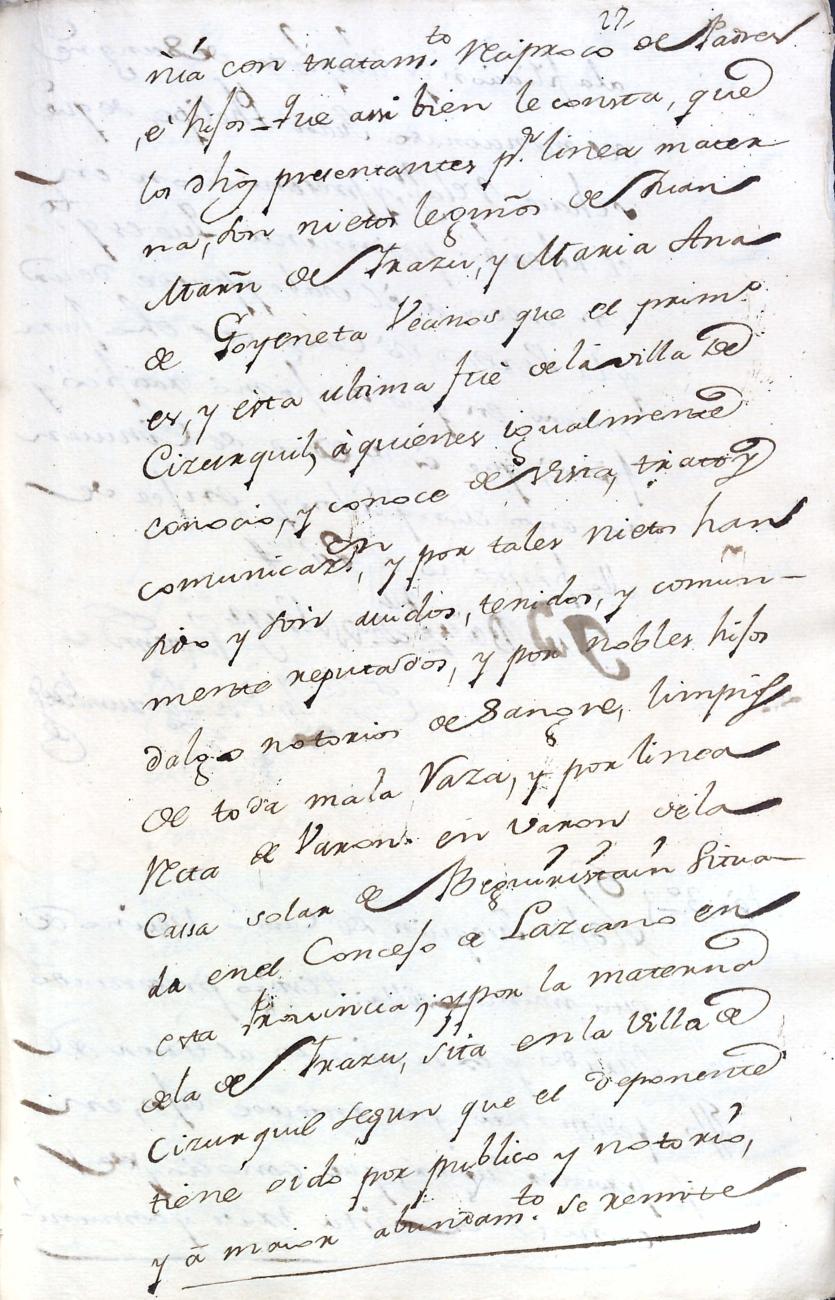 22
ñia con tratam.to Reciproco de Padres
, e hijos = Que assi bien le consta, que
los dhōs presentantes pr. linea mater
na, son nietos legmos. de Juan
Marn̄ de Irazu, y Maria Ana
de Goyeneta Vecinos que el prim.o
es, y esta ultima fue dela villa de
Cizurquil, à quienes igualmente
conocio, y conoce de vista, trato y
comunicazon, y por tales nietos han
sido y son auidos, tenidos, y comun-
mente reputados, y por nobles hijos
dalgo notorios de Sangre, limpios
de toda mala Raza, y por linea
Recta de Varon en varon dela
Cassa solar de Beguiristain Situa
da enel Concejo de Lazcano en
esta Provincia; y por la materna
dela de Irazu, sita en la Villa de
Cizurquil segun que el deponente
tiene oido por publico y notorio,
y à maior abundam.to se remite